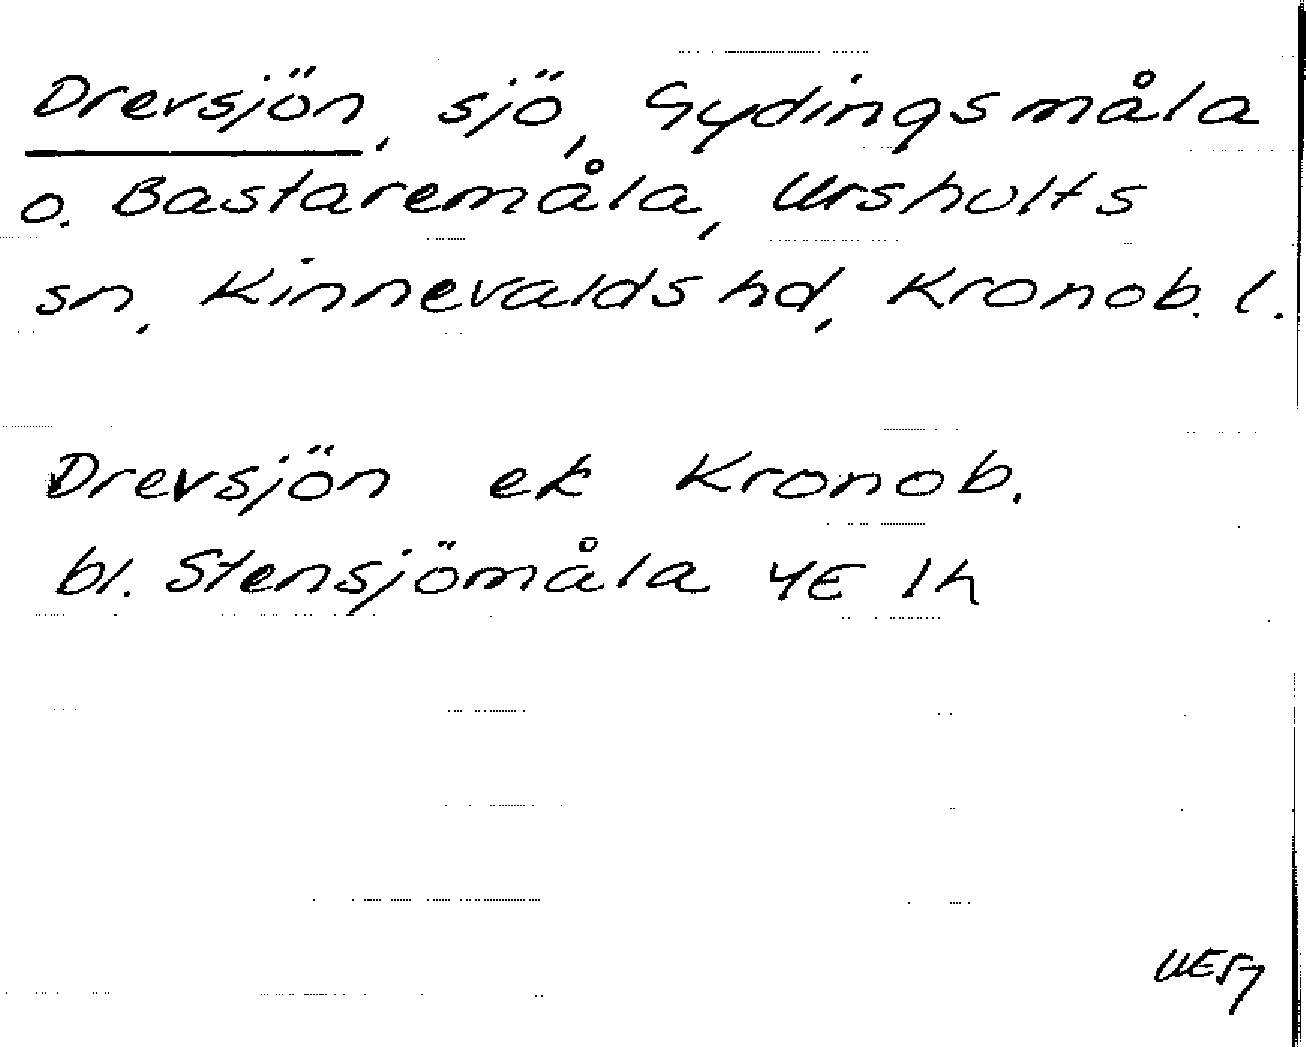 Drevsjön, sjö, Gydingsmåla
o. Bastaremåla, Urshults
sn, Kinnevalds hd, Kronob. l.
Drevsjön ek Kronob.
bl. Stensjömåla 4E 1h